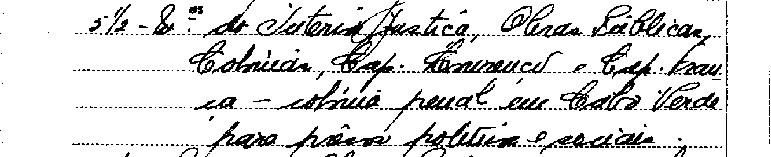 5 1/2 - 8 ms do Interior, Justiça, Obras Públicas,
Colónias, Cap. Lourenço e Cap.
cia - colónia penal em Cabo Verde
para presos politicos e sociais.